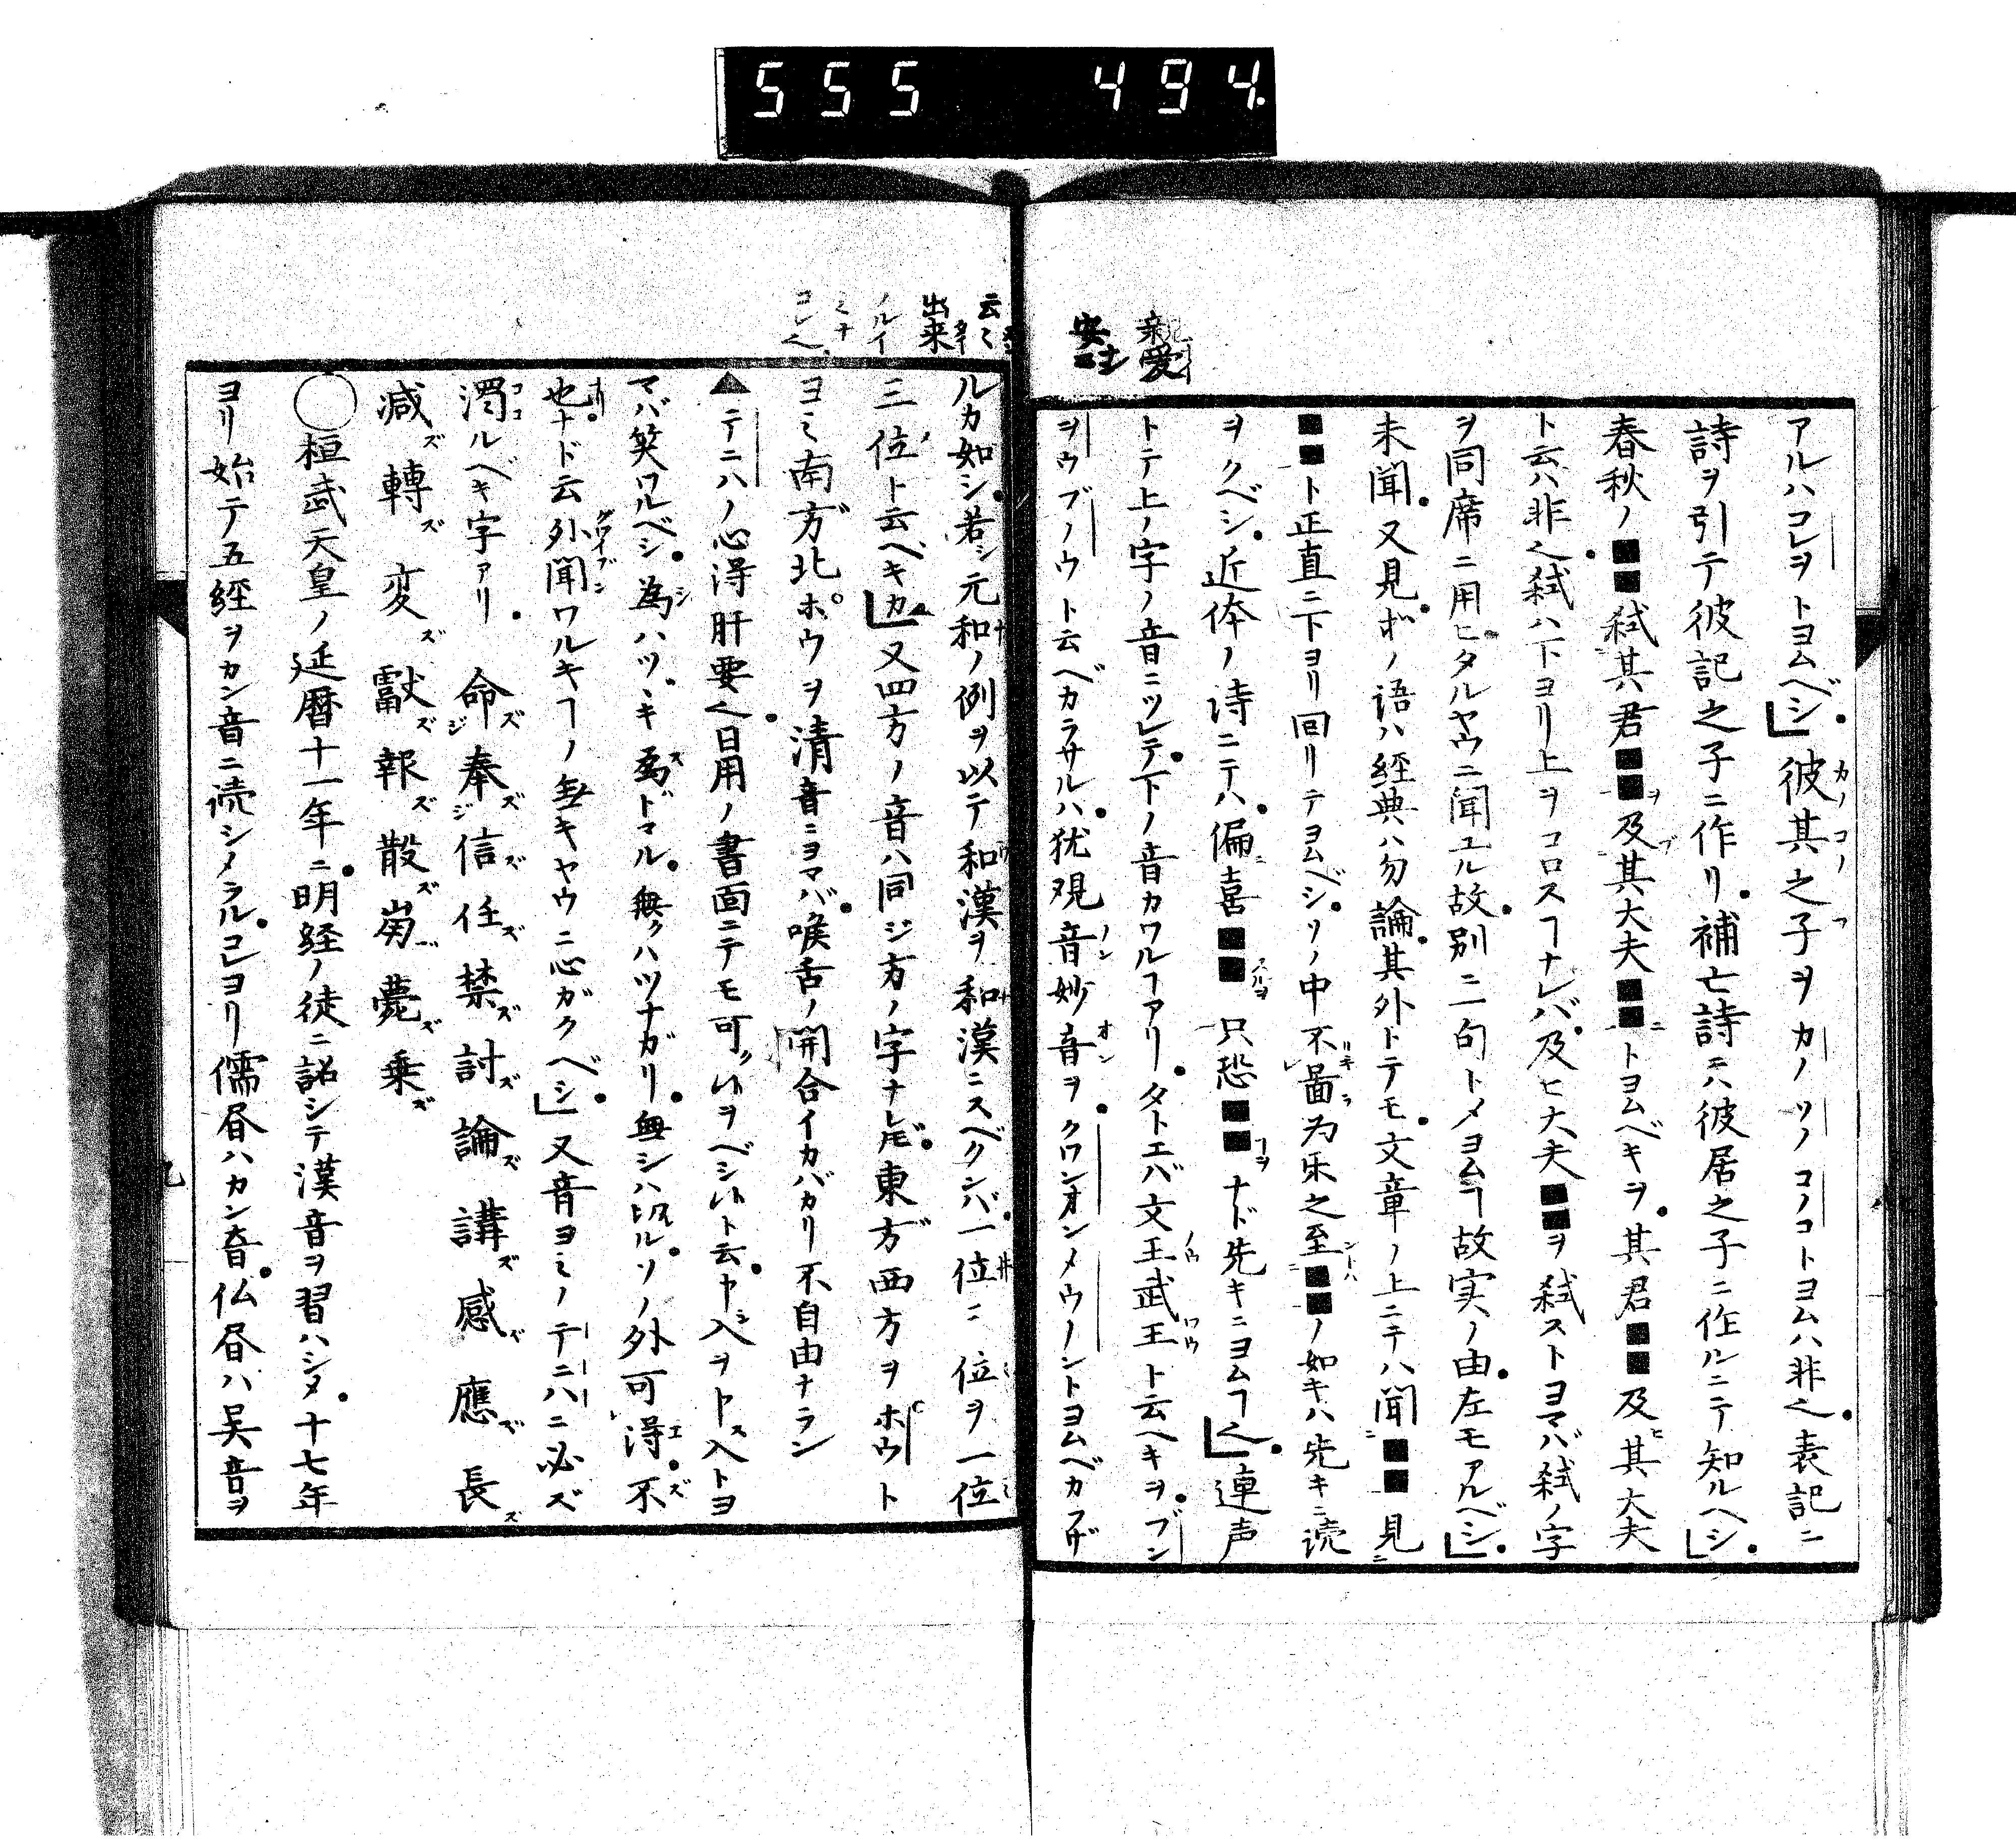 555 494.
親愛
安
アルハコレヲトヨムベシ」彼其之子ヲカノソノコノコトヨムハ非也表記ニ
詩ヲ引テ彼記之子ニ作リ補亡詩ニハ彼居之子ニ作ルニテ知ルヘシ」
春秋ノ■■弑其君■■及其大夫■■トヨムベキヲ其君■■及其大夫
ト云ハ非也弑ハ下ヨリ上ヲコロスヿナレバ及ヒ大夫■■ヲ弑ストヨマバ弑ノ字
ヲ同席ニ用ヒタルヤウニ聞ユル故別ニ二句トメヨムヿ故実ノ由左モアルベシ」
未聞又見ホノ语ハ経典ハ勿論其外トテモ文章ノ上ニテハ聞■■見
■■ト正直ニ下ヨリ回リテヨムベシソノ中不啚为乐之至■■ノ如キハ先キニ読
ヲクベシ近体ノ诗ニテハ偏喜■■只恐■■ナド先キニヨムヿ也」連声
トテ上ノ字ノ音ニツレテ下ノ音カワルヿアリタトエバ文王武王ト云ヘキヲブン
ヲウブノウト云ベカラサルハ犹观音妙音ヲクワンオンメウノントヨムベカラザ
云云
出来
ノルイ
ミナ
コレ也
ルカ如シ若シ元和ノ例ヲ以テ和漢ヲ和漢ニスベクンバ一位二位ヲ一位
三位ト云ベキカ」又四方ノ音ハ同ジ方ノ字ナレ𪜈東方西方ヲホウト
ヨミ南方北ホウヲ清音ニヨマバ喉舌ノ開合イカバカリ不自由ナラン
▲テニハノ心得肝要也日用ノ書面ニテモ可クヲベシト云申シ入ヲ申ス入トヨ
マバ笑ワルベシ為シハツヾキ為スドマル無クハツナガリ無シハ切ルソノ外可得不
也ナド云外聞ワルキヿノ無キヤウニ心ガクベシ」又音ヨミノテニハニ必ズ
濁ルベキ字アリ 命ズ奉ズ信ズ任ズ禁ズ討ズ論ズ講ズ感ズ應ズ長ズ
減ズ轉ズ変ズ獻ズ報ズ散ズ崩ズ薨ズ乗ズ
○桓武天皇ノ延暦十一年ニ明経ノ徒ニ詔シテ漢音ヲ習ハシタ十七年
ヨリ始テ五経ヲカン音ニ読シメラルコレヨリ儒昼ハカン音仏昼ハ吴音ヲ
九